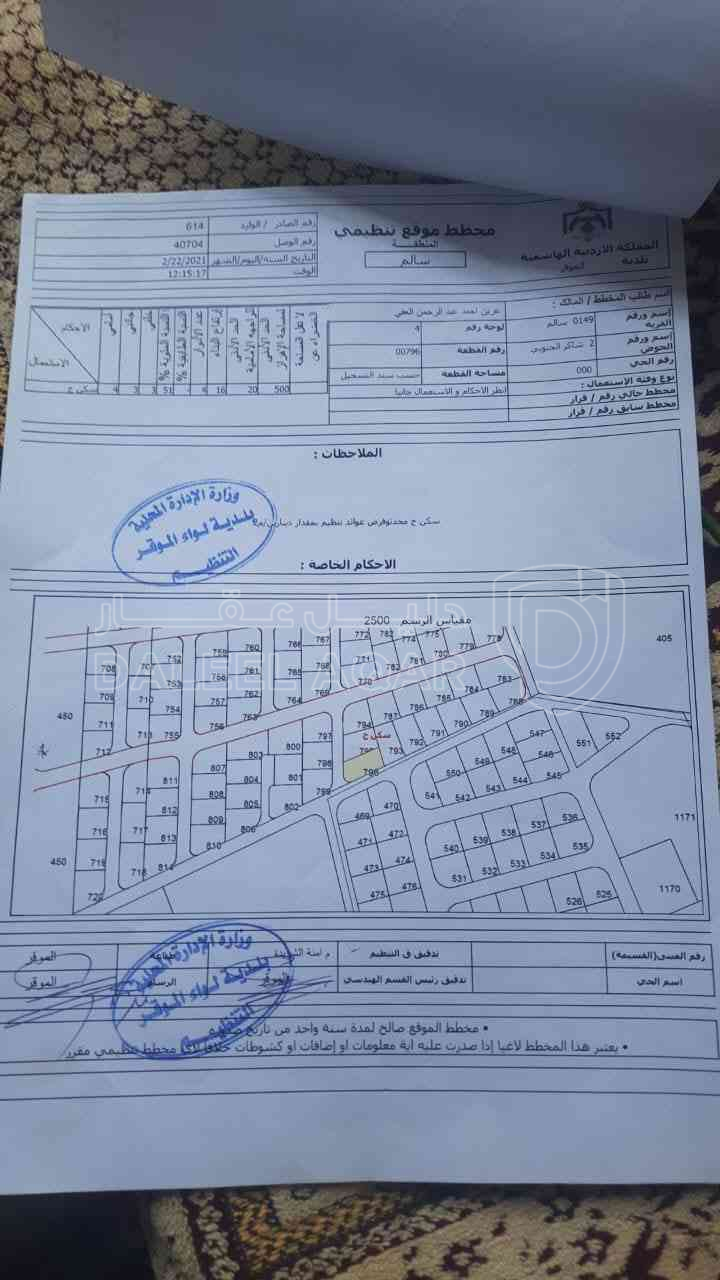 المملكة الاردنية الهاشمية
بلدية الموقر
مخطط موقع تنظيمي
المنطقة
سالم
رقم الصادر / الوارد 614
رقم الوصل 40704
التاريخ السنة/اليوم/الشهر 2/22/2021
الوقت 12:15:17
اسم طالب المخطط / المالك : احمد عبد الرحمن
إسم ورقم القرية 0149 سالم
لوحة رقم 4
إسم ورقم الحوض 2 شاكر الجنوبي
رقم القطعة 00796
رقم الحي 000
مساحة القطعة حسب سند التسجيل
نوع وفئة الاستعمال : انظر الاحكام و الاستعمال جانبا
مخطط حالي رقم / قرار
مخطط سابق رقم / قرار
الاحكام
الاستعمال
أمامي
جانبي
خلفي
النسبة المئوية %
النسبة الطابقية %
عدد الادوار
إرتفاع البناء
الحد الأدنى للواجهة الأمامية
الحد الأدنى لمساحة الإفراز
سكن ج 4 3 3 51 4 16 20 500
الملاحظات :
سكن ج
عوائد تنظيم بمقدار
وزارة الإدارة المحلية
بلدية لواء الموقر
التنظيم
الاحكام الخاصة :
مقياس الرسم 2500
دليل عقار
DALEEL AQAR
405
450
450
1171
1170
708
709
711
712
707
710
713
752
753
754
755
759
756
757
758
760
761
762
763
766
765
764
769
767
768
772
771
770
782
774
775
781
780
779
778
783
785
786
787
784
788
789
790
791
792
793
794
سكن ج
796
797
798
799
800
801
802
803
804
805
806
807
808
809
810
811
812
813
814
715
716
719
714
717
718
469
470
471
472
473
474
475
476
541
550
542
549
543
548
544
547
546
545
551
552
540
539
538
537
536
531
532
533
534
535
526
525
رقم القسيمة)
تدقيق ف التنظيم
م امنة
طباعة
الموقر
اسم الحي
تدقيق رئيس القسم الهندسي
الموقر
الرسام
الموقر
وزارة الإدارة المحلية
بلدية لواء الموقر
التنظيم
• مخطط الموقع صالح لمدة سنة واحد من تاريخ
• يعتبر هذا المخطط لاغيا إذا صدرت عليه اية معلومات او إضافات او كشوطات خلافا لأي مخطط تنظيمي مقرر